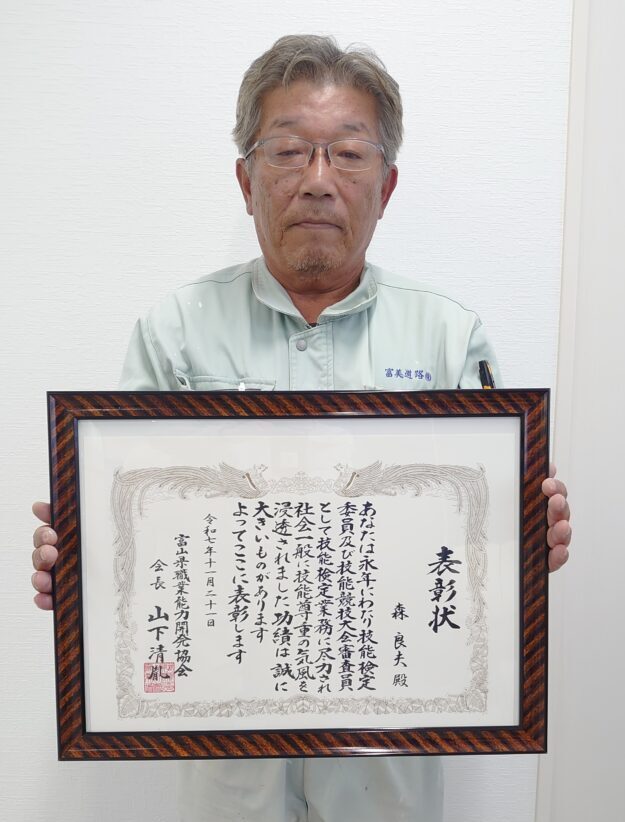 富美道路㈱
表彰状
森良夫殿
あなたは永年にわたり技能検定
委員及び技能競技大会審査員
として技能検定業務に尽力され
社会一般に技能尊重の気風を
浸透されました功績は誠に
大きいものがあります
よってここに表彰します
令和七年十一月二十一日
富山県職業能力開発協会
会長 山下清胤